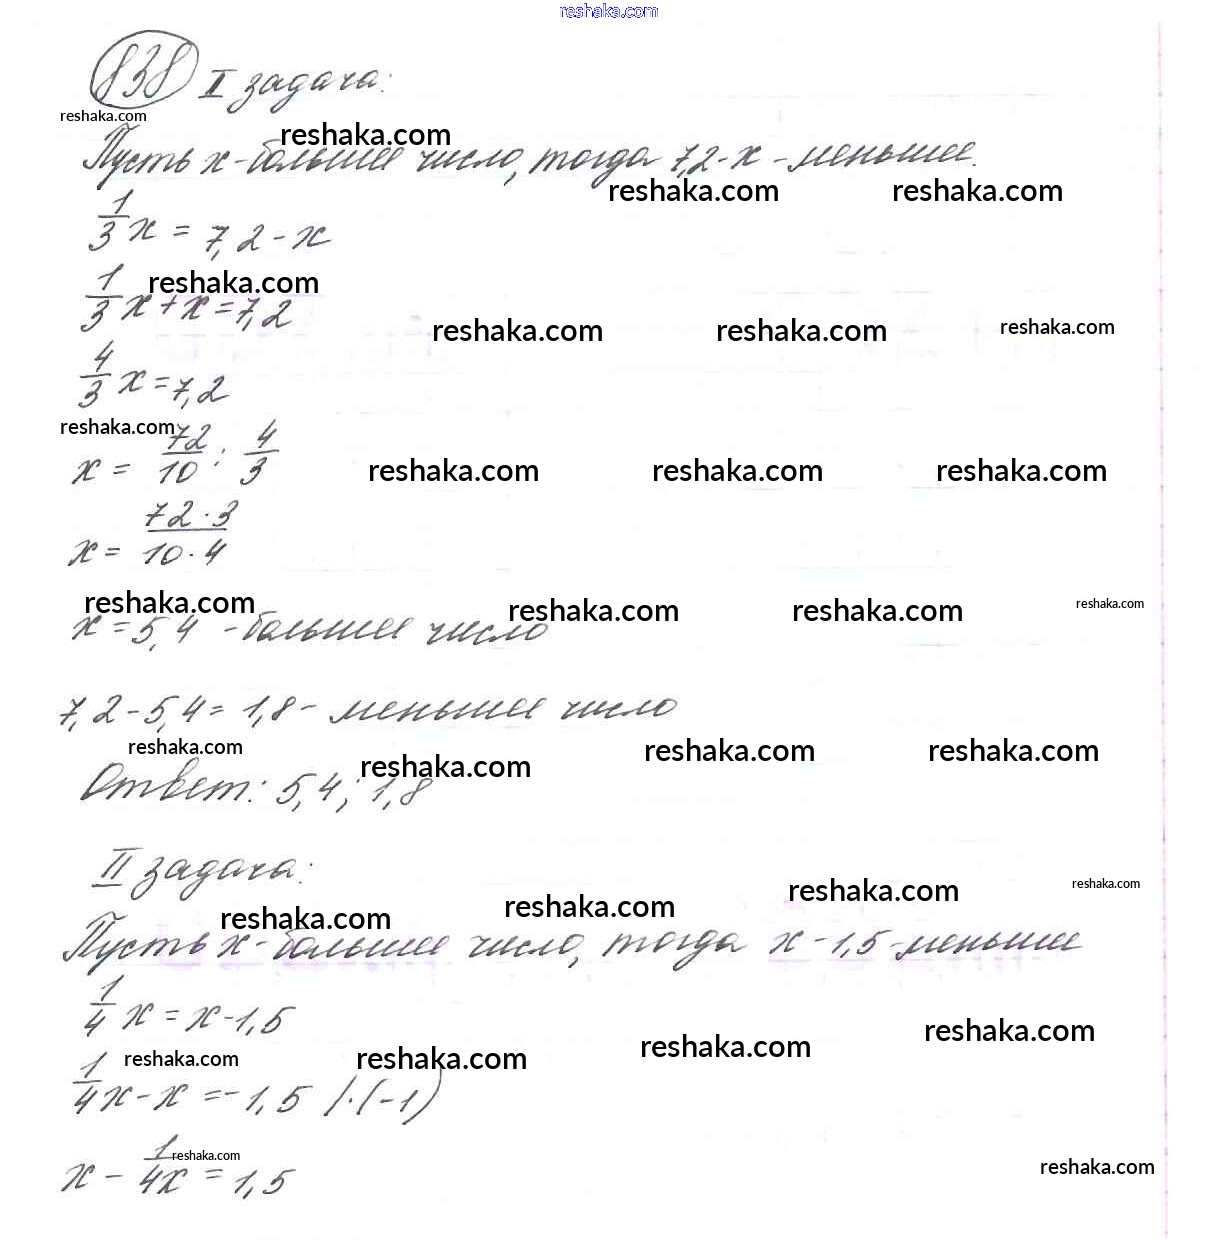 reshaka.com
838 I задача:
reshaka.com
reshaka.com
Пусть x - большее число, тогда 7,2 - x - меньшее.
reshaka.com reshaka.com
1/3 x = 7,2 - x
reshaka.com
1/3 x + x = 7,2
reshaka.com reshaka.com reshaka.com
4/3 x = 7,2
reshaka.com
x = 72/10 : 4/3
reshaka.com reshaka.com reshaka.com
x = 72 · 3 / 10 · 4
reshaka.com reshaka.com reshaka.com reshaka.com
x = 5,4 - большее число
7,2 - 5,4 = 1,8 - меньшее число
reshaka.com reshaka.com reshaka.com reshaka.com
Ответ: 5,4; 1,8
II задача:
reshaka.com reshaka.com reshaka.com reshaka.com
Пусть x - большее число, тогда x - 1,5 - меньшее
1/4 x = x - 1,5
reshaka.com reshaka.com reshaka.com reshaka.com
1/4 x - x = - 1,5 | · (-1)
reshaka.com reshaka.com
x - 1/4x = 1,5